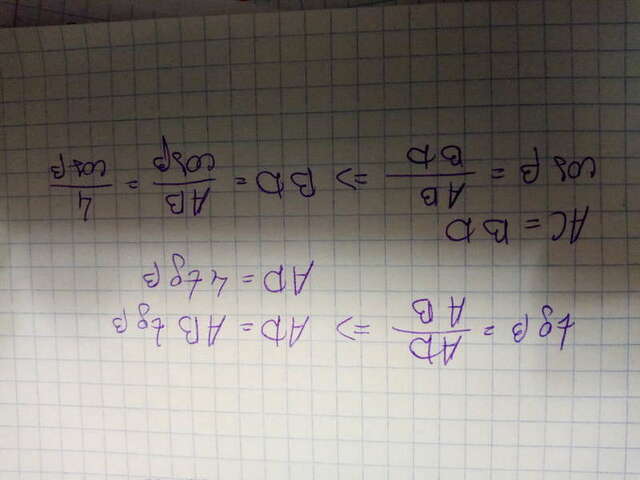 tgβ = AD/AB => AD = AB tgβ
AD = 4tgβ
AC = BD
cosβ = AB/BD => BD = AB/cosβ = 4/cosβ